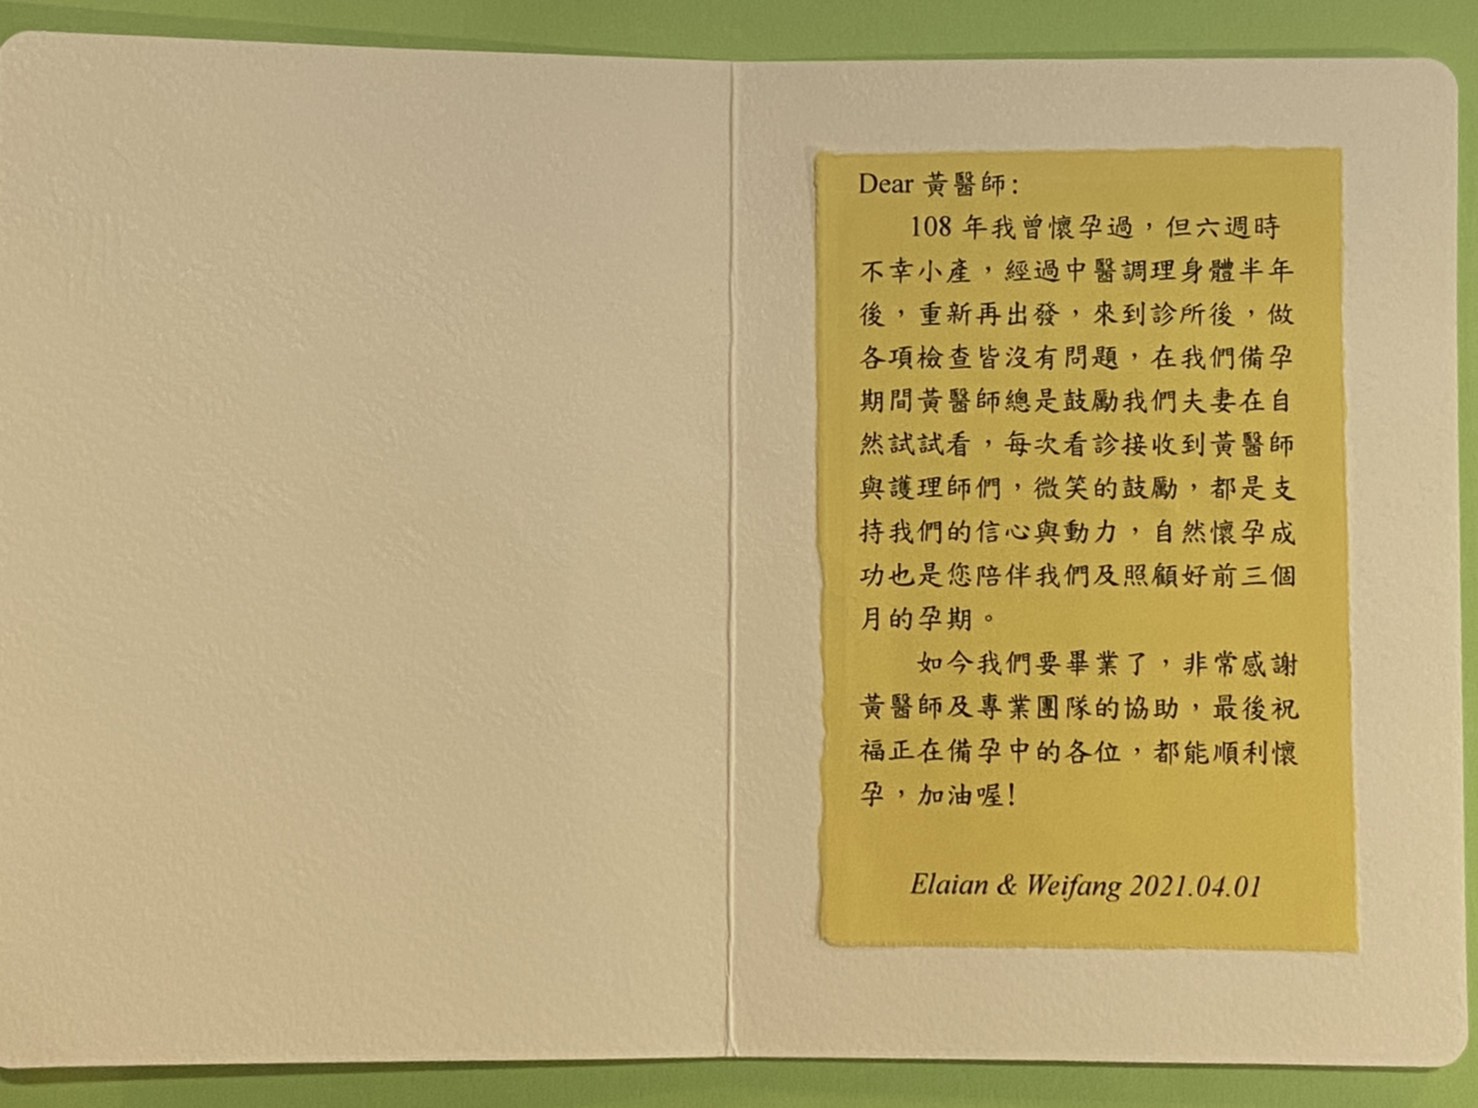 Dear 黃醫師:
108 年我曾懷孕過，但六週時
不幸小產，經過中醫調理身體半年
後，重新再出發，來到診所後，做
各項檢查皆沒有問題，在我們備孕
期間黃醫師總是鼓勵我們夫妻在自
然試試看，每次看診接收到黃醫師
與護理師們，微笑的鼓勵，都是支
持我們的信心與動力，自然懷孕成
功也是您陪伴我們及照顧好前三個
月的孕期。
如今我們要畢業了，非常感謝
黃醫師及專業團隊的協助，最後祝
福正在備孕中的各位，都能順利懷
孕，加油喔!
Elaian & Weifang 2021.04.01